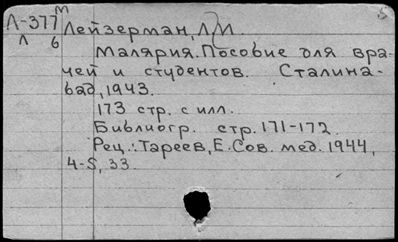 Л-377 М Лейзерман, Л.И.
Л 6
Малярия. Пособие для вра-
чей и студентов. Сталина-
бад, 1943.
173 стр. с илл.
Библиогр. стр. 171-172.
Рец.: Тареев, Е. Сов. мед. 1944,
4-5, 33.